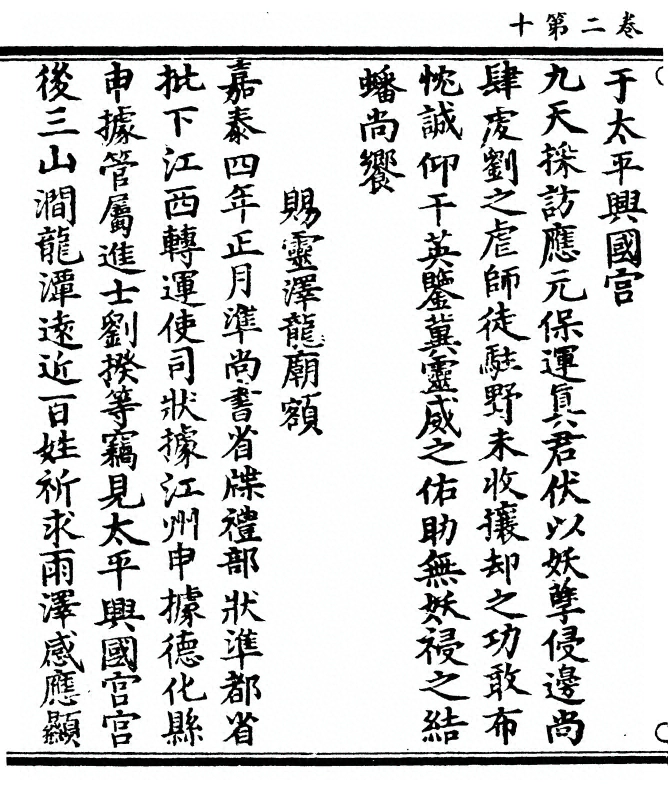 卷二第十
于太平興國宮
九天採訪應元保運眞君伏以妖孽侵邊尚
肆虔劉之虐師徒駐野未收攘却之功敢布
忱誠仰干英鑒冀靈威之佑助無妖祲之結
蟠尚饗
賜靈澤龍廟額
嘉泰四年正月準尚書省牒禮部狀準都省
批下江西轉運使司狀據江州申據德化縣
申據管屬進士劉揆等竊見太平興國宮宮
後三山澗龍潭遠近百姓祈求雨澤感應顯